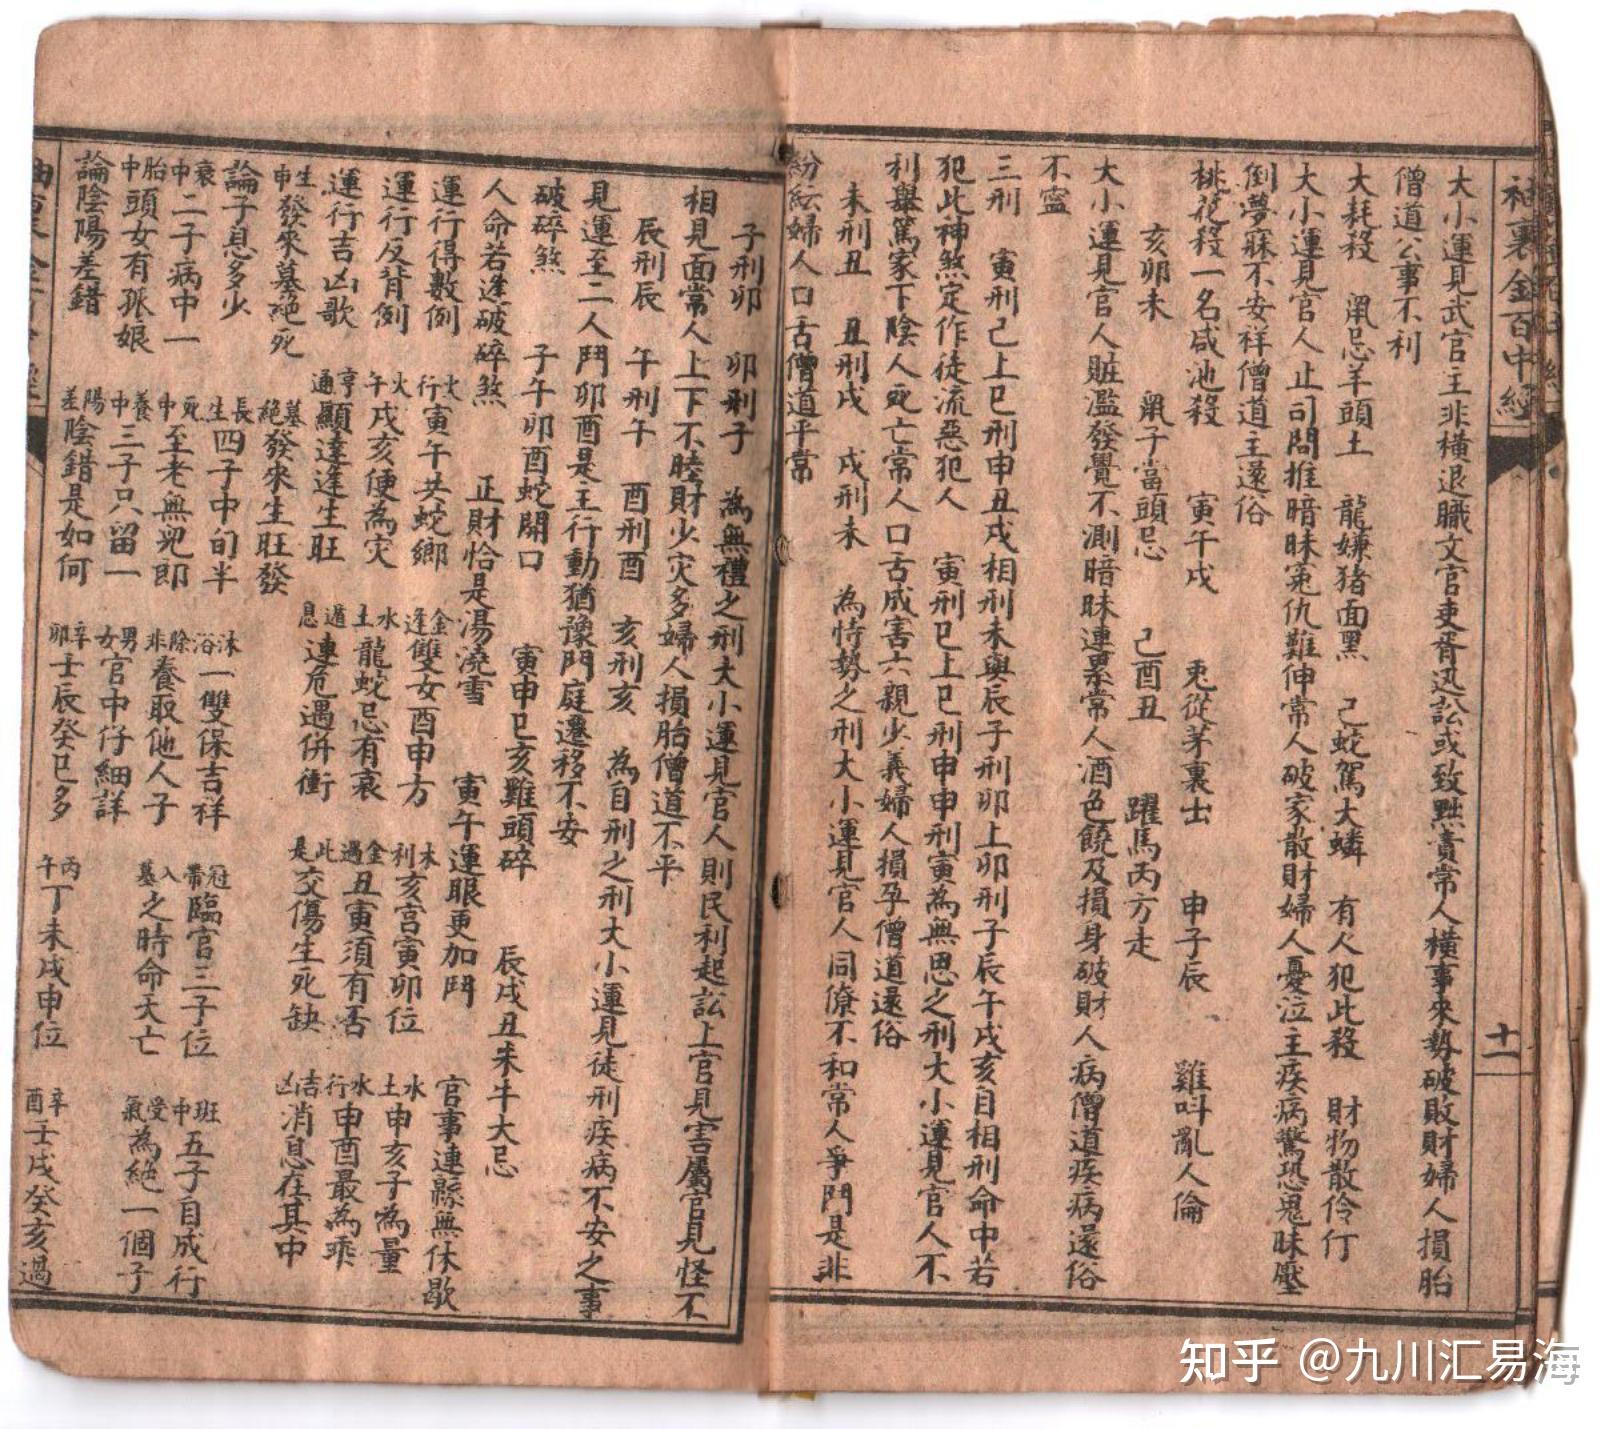 袖裏金百中經
十一
大小運見武官主非橫退職文官吏胥迅訟或致黜責常人橫事來勢破敗財婦人損胎
僧道公事不利
大耗殺 鼠忌羊頭土 龍嫌猪面黑 己蛇駕大蟒 有人犯此殺 財物散伶仃
大小運見官人止司問推暗昧冤仇難伸常人破家散財婦人憂泣主疾病驚恐鬼昧壓
倒夢寐不安祥僧道主還俗
桃花殺一名咸池殺 寅午戌 兎從茅裏出 申子辰 雞呌亂人倫
亥卯未 鼠子當頭忌 己酉丑 躍馬丙方走
大小運見官人賍濫發覺不測暗昧連累常人酒色饒及損身破財人病僧道疾病還俗
不寧
三刑 寅刑己上巳刑申丑戌相刑未與辰子刑卯上卯刑子辰午戌亥自相刑命中若
犯此神煞定作徒流惡犯人 寅刑巳上巳刑申申刑寅為無恩之刑大小運見官人不
利舉篤家下陰人死亡常人口舌成害六親少義婦人損孕僧道還俗
未刑丑 丑刑戌 戌刑未 為恃勢之刑大小運見官人同僚不和常人爭鬥是非
紛紜婦人口舌僧道平常
子刑卯 卯刑子 為無禮之刑大小運見官人則民利起訟上官見害屬官見怪不
相見面常人上下不睦財少灾多婦人損胎僧道不平
辰刑辰 午刑午 酉刑酉 亥刑亥 為自刑之刑大小運見徒刑疾病不安之事
見運至二人鬥卯酉是主行動猶豫門庭遷移不安
破碎煞 子午卯酉蛇開口 寅申巳亥雞頭碎 辰戌丑未牛大忌
人命若逢破碎煞 正財恰是湯澆雪 寅午運眼更加鬥 官事連縣無休歇
運行得數例 火行寅午共蛇鄉 金逢雙女酉申方 木利亥宫寅卯位 水土申亥子為量
運行反背例 火午戌亥便為灾 水土龍蛇忌有哀 金遇丑寅須有否 水行申酉最為乖
運行吉凶歌 亨通顯達逢生旺 遁息連危遇併衝 此是交傷生死缺 吉凶消息在其中
生申發來墓絶死 墓絕發來生旺發
論子息多少 長生四子中旬半 沐浴一雙保吉祥 冠帶臨官三子位 班中五子自成行
衰中二子病中一 死中至老無兒郎 除非養取他人子 入墓之時命夭亡 受氣為絕一個子
胎中頭女有孤娘 養中三子只留一 男女官中仔細詳
論陰陽差錯 陽差陰錯是如何 辛卯壬辰癸巳多 丙午丁未戌申位 辛酉壬戌癸亥過
知乎 @九川汇易海